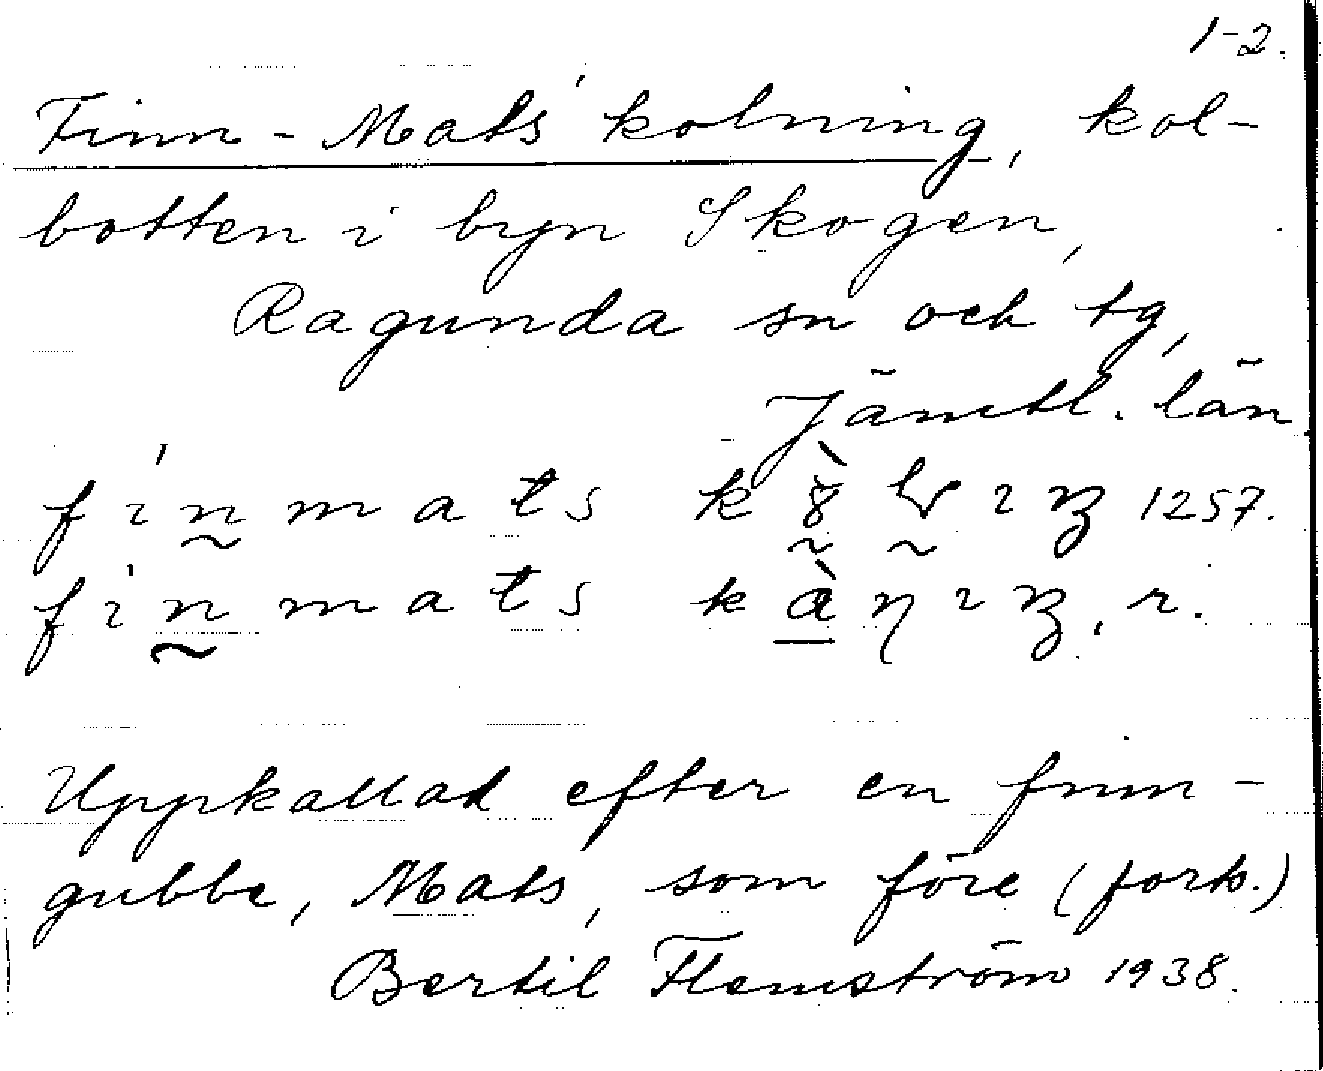 1-2.
Finn-Mats' kolning, kol-
botten i byn Skogen,
Ragunda sn och tg,
Jämtl. län
1257.
r.
Uppkallad efter en finn-
gubbe, Mats, som före (forts.)
Bertil Flemström 1938.